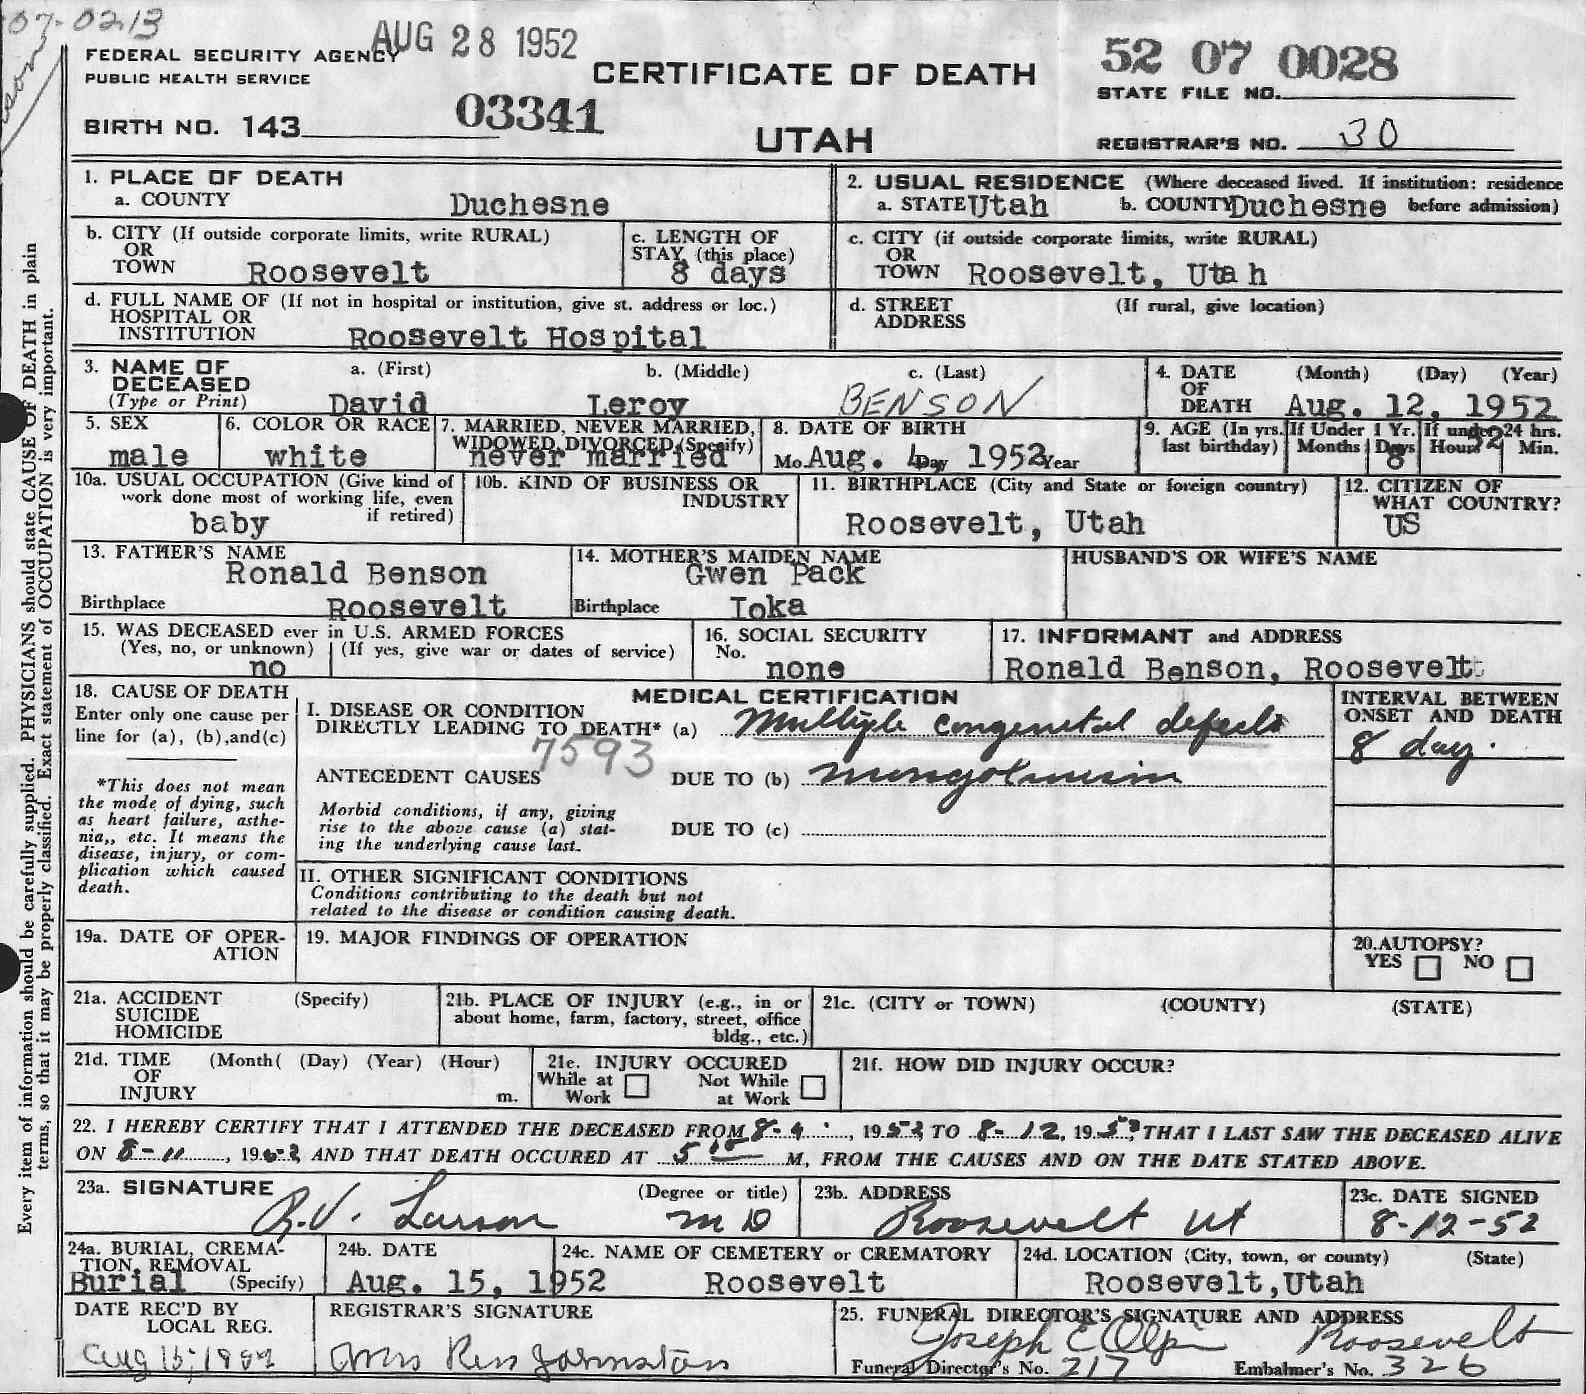 07-0213
AUG 28 1952
FEDERAL SECURITY AGENCY
PUBLIC HEALTH SERVICE
CERTIFICATE OF DEATH
52 07 0028
STATE FILE NO.
BIRTH NO. 143
03341
UTAH
REGISTRAR'S NO. 30
1. PLACE OF DEATH
a. COUNTY Duchesne
2. USUAL RESIDENCE (Where deceased lived. If institution: residence
a. STATE Utah b. COUNTY Duchesne before admission)
b. CITY (If outside corporate limits, write RURAL)
OR
TOWN Roosevelt
c. LENGTH OF
STAY (this place)
8 days
c. CITY (if outside corporate limits, write RURAL)
OR
TOWN Roosevelt, Utah
d. FULL NAME OF (If not in hospital or institution, give st. address or loc.)
HOSPITAL OR
INSTITUTION Roosevelt Hospital
d. STREET (If rural, give location)
ADDRESS
3. NAME OF a. (First) b. (Middle) c. (Last)
DECEASED
(Type or Print) David Leroy BENSON
4. DATE (Month) (Day) (Year)
OF
DEATH Aug. 12, 1952
5. SEX
male
6. COLOR OR RACE
white
7. MARRIED, NEVER MARRIED,
WIDOWED, DIVORCED (Specify)
never married
8. DATE OF BIRTH
Mo. Aug. 4, Day 1952 Year
9. AGE (In yrs. last birthday)
If Under 1 Yr.
Months Days
8
If under 24 hrs.
Hours Min.
10a. USUAL OCCUPATION (Give kind of
work done most of working life, even
if retired)
baby
10b. KIND OF BUSINESS OR
INDUSTRY
11. BIRTHPLACE (City and State or foreign country)
Roosevelt, Utah
12. CITIZEN OF
WHAT COUNTRY?
US
13. FATHER'S NAME
Ronald Benson
Birthplace Roosevelt
14. MOTHER'S MAIDEN NAME
Gwen Pack
Birthplace Ioka
HUSBAND'S OR WIFE'S NAME
15. WAS DECEASED ever in U.S. ARMED FORCES
(Yes, no, or unknown) (If yes, give war or dates of service)
no
16. SOCIAL SECURITY
No.
none
17. INFORMANT and ADDRESS
Ronald Benson, Roosevelt
18. CAUSE OF DEATH
Enter only one cause per
line for (a), (b),and(c)
MEDICAL CERTIFICATION
I. DISEASE OR CONDITION
DIRECTLY LEADING TO DEATH* (a) Multiple congenital defects
7593
INTERVAL BETWEEN
ONSET AND DEATH
8 day.
*This does not mean
the mode of dying, such
as heart failure, asthe-
nia,, etc. It means the
disease, injury, or com-
plication which caused
death.
ANTECEDENT CAUSES DUE TO (b) mongolinism
Morbid conditions, if any, giving
rise to the above cause (a) stat-
ing the underlying cause last.
DUE TO (c)
II. OTHER SIGNIFICANT CONDITIONS
Conditions contributing to the death but not
related to the disease or condition causing death.
19a. DATE OF OPER-
ATION
19. MAJOR FINDINGS OF OPERATION
20.AUTOPSY?
YES NO
21a. ACCIDENT (Specify)
SUICIDE
HOMICIDE
21b. PLACE OF INJURY (e.g., in or
about home, farm, factory, street, office
bldg., etc.)
21c. (CITY or TOWN) (COUNTY) (STATE)
21d. TIME (Month( (Day) (Year) (Hour)
OF
INJURY m.
21e. INJURY OCCURED
While at Work Not While at Work
21f. HOW DID INJURY OCCUR?
22. I HEREBY CERTIFY THAT I ATTENDED THE DECEASED FROM 8-4, 1952 TO 8-12, 1952, THAT I LAST SAW THE DECEASED ALIVE
ON 8-11, 1952 AND THAT DEATH OCCURED AT 5 10 M, FROM THE CAUSES AND ON THE DATE STATED ABOVE.
23a. SIGNATURE (Degree or title)
R.V. Larson MD
23b. ADDRESS
Roosevelt Ut
23c. DATE SIGNED
8-12-52
24a. BURIAL, CREMA-
TION, REMOVAL
Burial (Specify)
24b. DATE
Aug. 15, 1952
24c. NAME OF CEMETERY or CREMATORY
Roosevelt
24d. LOCATION (City, town, or county) (State)
Roosevelt, Utah
DATE REC'D BY
LOCAL REG.
Aug 15, 1952
REGISTRAR'S SIGNATURE
Mrs Ross Johnston
25. FUNERAL DIRECTOR'S SIGNATURE AND ADDRESS
Joseph E Olpin Roosevelt
Funeral Director's No. 217 Embalmer's No. 326
Every item of information should be carefully supplied. PHYSICIANS should state CAUSE OF DEATH in plain
terms, so that it may be properly classified. Exact statement of OCCUPATION is very important.